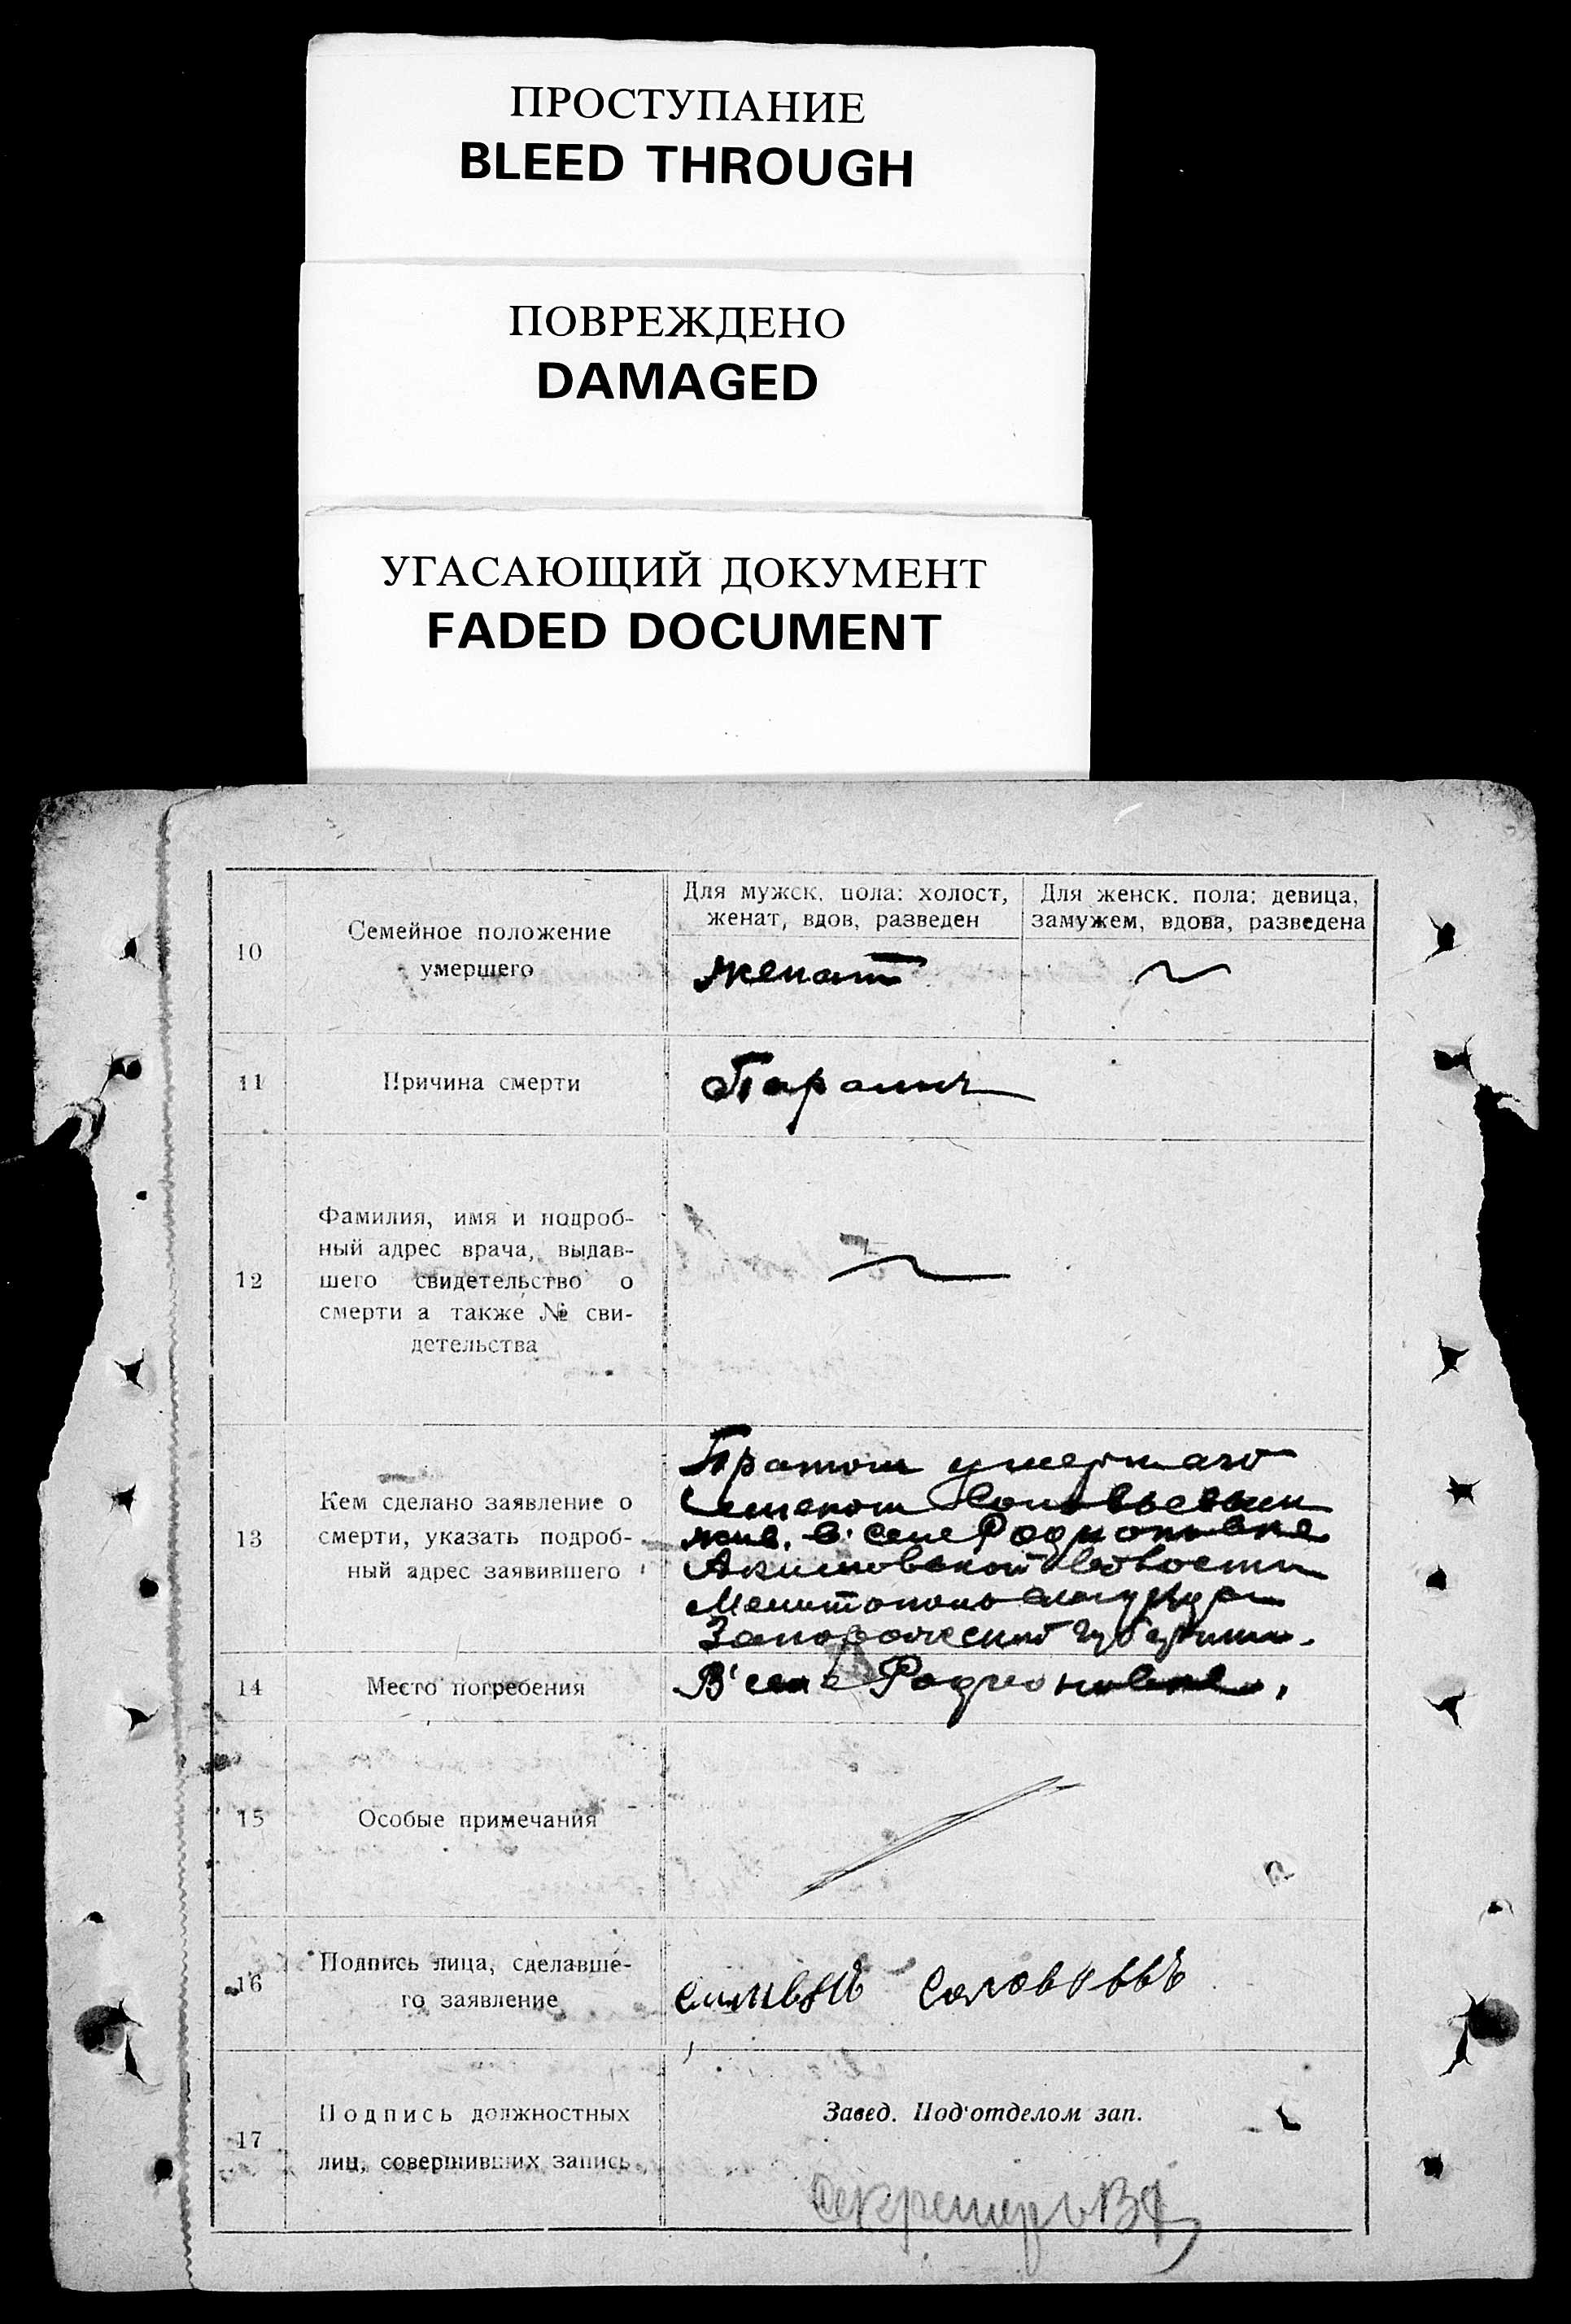 ПРОСТУПАНИЕ
BLEED THROUGH
ПОВРЕЖДЕНО
DAMAGED
УГАСАЮЩИЙ ДОКУМЕНТ
FADED DOCUMENT
10
Семейное положение
умершего
Для мужск. пола: холост,
женат, вдов, разведен
Для женск. пола: девица,
замужем, вдова, разведена
женат
11
Причина смерти
12
Фамилия, имя и подроб-
ный адрес врача, выдав-
шего свидетельство о
смерти а также № сви-
детельства
13
Кем сделано заявление о
смерти, указать подроб-
ный адрес заявившего
Братом умершаго
Семеном Соловьевым
жив. в селе Родионовке
Акимовской волости
Мелитопольского уезда
Запорожской губернии.
14
Место погребения
В селе Родионовке.
15
Особые примечания
16
Подпись лица, сделавше-
го заявление
Соловьевъ
17
Подпись должностных
лиц, совершивших запись
Завед. Под'отделом зап.
Секретарь